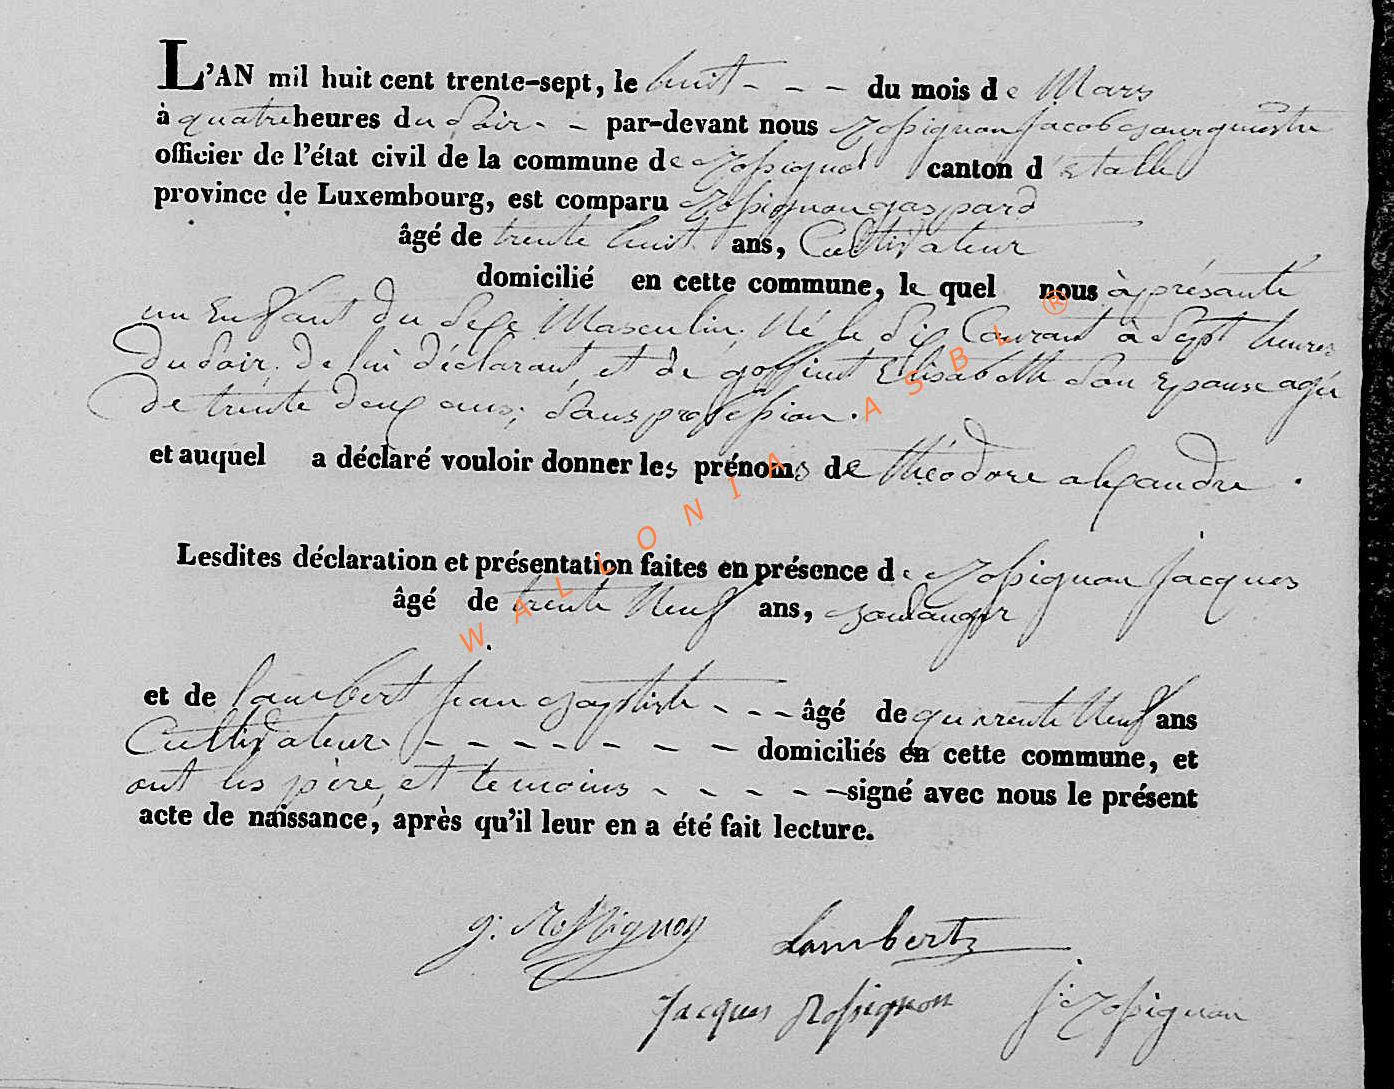 L'AN mil huit cent trente-sept, le huit - - - du mois de Mars
à quatre heures du Soir - - par-devant nous Rossignon Jacob Bourguestre
officier de l'état civil de la commune de Rossignol canton d'Etalle
province de Luxembourg, est comparu Rossignon gaspard
âgé de trente huit ans, Cultivateur
domicilié en cette commune, le quel nous à présanté
un Enfant du Sexe Masculin, Né le Six Courant à Sept heures
Du Soir, De lui déclarant, et de goffinet Elisabeth Son Epouse agée
De trente deux ans, Sans profession.
et auquel a déclaré vouloir donner les prénoms de théodore alexandre.
Lesdites déclaration et présentation faites en présence de Rossignon Jacques
âgé de trente Neuf ans, Boulanger
et de lambert Jean Baptiste - - - âgé de quarente Neuf ans
Cultivateur - - - - - - - - domiciliés en cette commune, et
ont les père, et temoins - - - - - signé avec nous le présent
acte de naissance, après qu'il leur en a été fait lecture.
g. Rossignon Lambert
Jacques Rossignon J: Rossignon
WALLONIA ASBL ®